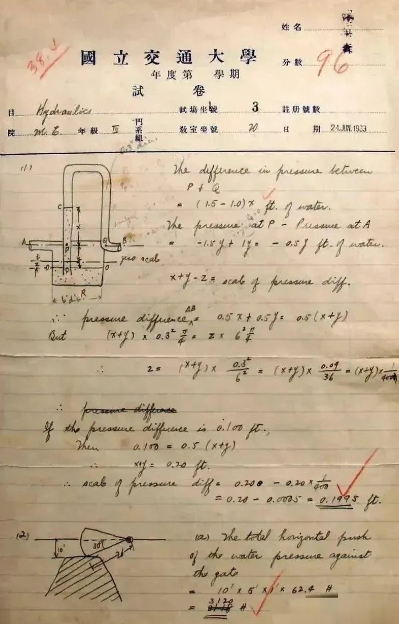 姓名
38.↓
國立交通大學
分數 96
年度第 學期
試卷
日 Hydraulics 試場坐號 3 註冊號數
院 M.E. 年級 IV 門系組 教室坐號 20 日期 24 JUN 1933
(1)
The difference in pressure between
P & Q
= (1.5-1.0)x ft. of water.
The pressure at P - Pressure at A
= -1.5y + 1y = -0.5y ft. of water.
zero scale
x+y-z = scale of pressure diff.
6" dia.
∴ pressure difference AB = 0.5x + 0.5y = 0.5(x+y)
But (x+y) × 0.3² π/4 = z × 6² π/4
∴ z = (x+y) × 0.3²/6² = (x+y) × 0.09/36 = (x+y) × 1/400
∴ pressure difference
If the pressure difference is 0.100 ft.,
Then 0.100 = 0.5 (x+y)
x+y = 0.20 ft.
∴ scale of pressure diff = 0.200 - 0.20 × 1/400
= 0.20 - 0.0005 = 0.1995 ft.
(2)
10'
30°
(a) The total horizontal push
of the water pressure against
the gate
= 10' × 5' × 1' × 62.4 #
= 3120 #